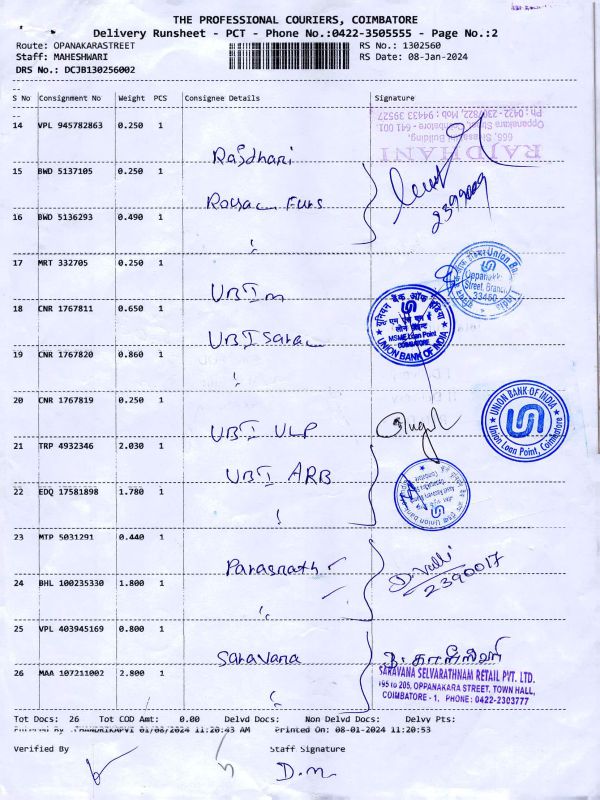 THE PROFESSIONAL COURIERS, COIMBATORE
Delivery Runsheet - PCT - Phone No.:0422-3505555 - Page No.:2
Route: OPANAKARASTREET RS No.: 1302560
Staff: MAHESHWARI RS Date: 08-Jan-2024
DRS No.: DCJB130256002
S No Consignment No Weight PCS Consignee Details Signature
14 VPL 945782863 0.250 1 Rajdhani
RAJDHANI
15 BWD 5137105 0.250 1
16 BWD 5136293 0.490 1
17 MRT 332705 0.250 1 UBI m
18 CNR 1767811 0.650 1 UBI
यूनियन बैंक ऑफ इंडिया
MSME Loan Point
COIMBATORE
UNION BANK OF INDIA
19 CNR 1767820 0.860 1
20 CNR 1767819 0.250 1 UBI ULP
UNION BANK OF INDIA
Union Loan Point, Coimbatore
21 TRP 4932346 2.030 1 UBI ARB
22 EDQ 17581898 1.780 1
23 MTP 5031291 0.440 1 Parasnath
2390017
24 BHL 100235330 1.800 1
25 VPL 403945169 0.800 1 Saravana
26 MAA 107211002 2.800 1
SARAVANA SELVARATHNAM RETAIL PVT. LTD.
195 to 205, OPPANAKARA STREET, TOWN HALL,
COIMBATORE - 1. PHONE : 0422-2303777
Tot Docs: 26 Tot COD Amt: 0.00 Delvd Docs: Non Delvd Docs: Delvy Pts:
01/08/2024 11:20:43 AM Printed On: 08-01-2024 11:20:53
Verified By Staff Signature
D.m